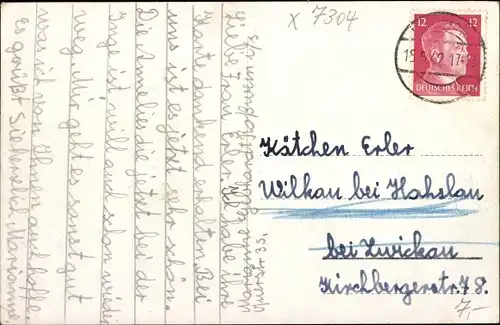 x 7304
12 12
DEUTSCHES REICH
17-
Marianne
Liebe Frau Erler. Ich habe ihre
Karte dankend erhalten. Bei
uns ist es jetzt sehr schön.
Die Amelie die jetzt bei der
Inge ist will auch schon wieder
weg. Mir geht es sonst gut
was ich von Ihnen auch hoffe.
Es grüßt Sie herzlich Marianne
Kätchen Erler
Wilkau bei Haßlau
bei Zwickau
Kirchbergerstr. 78.
7,-